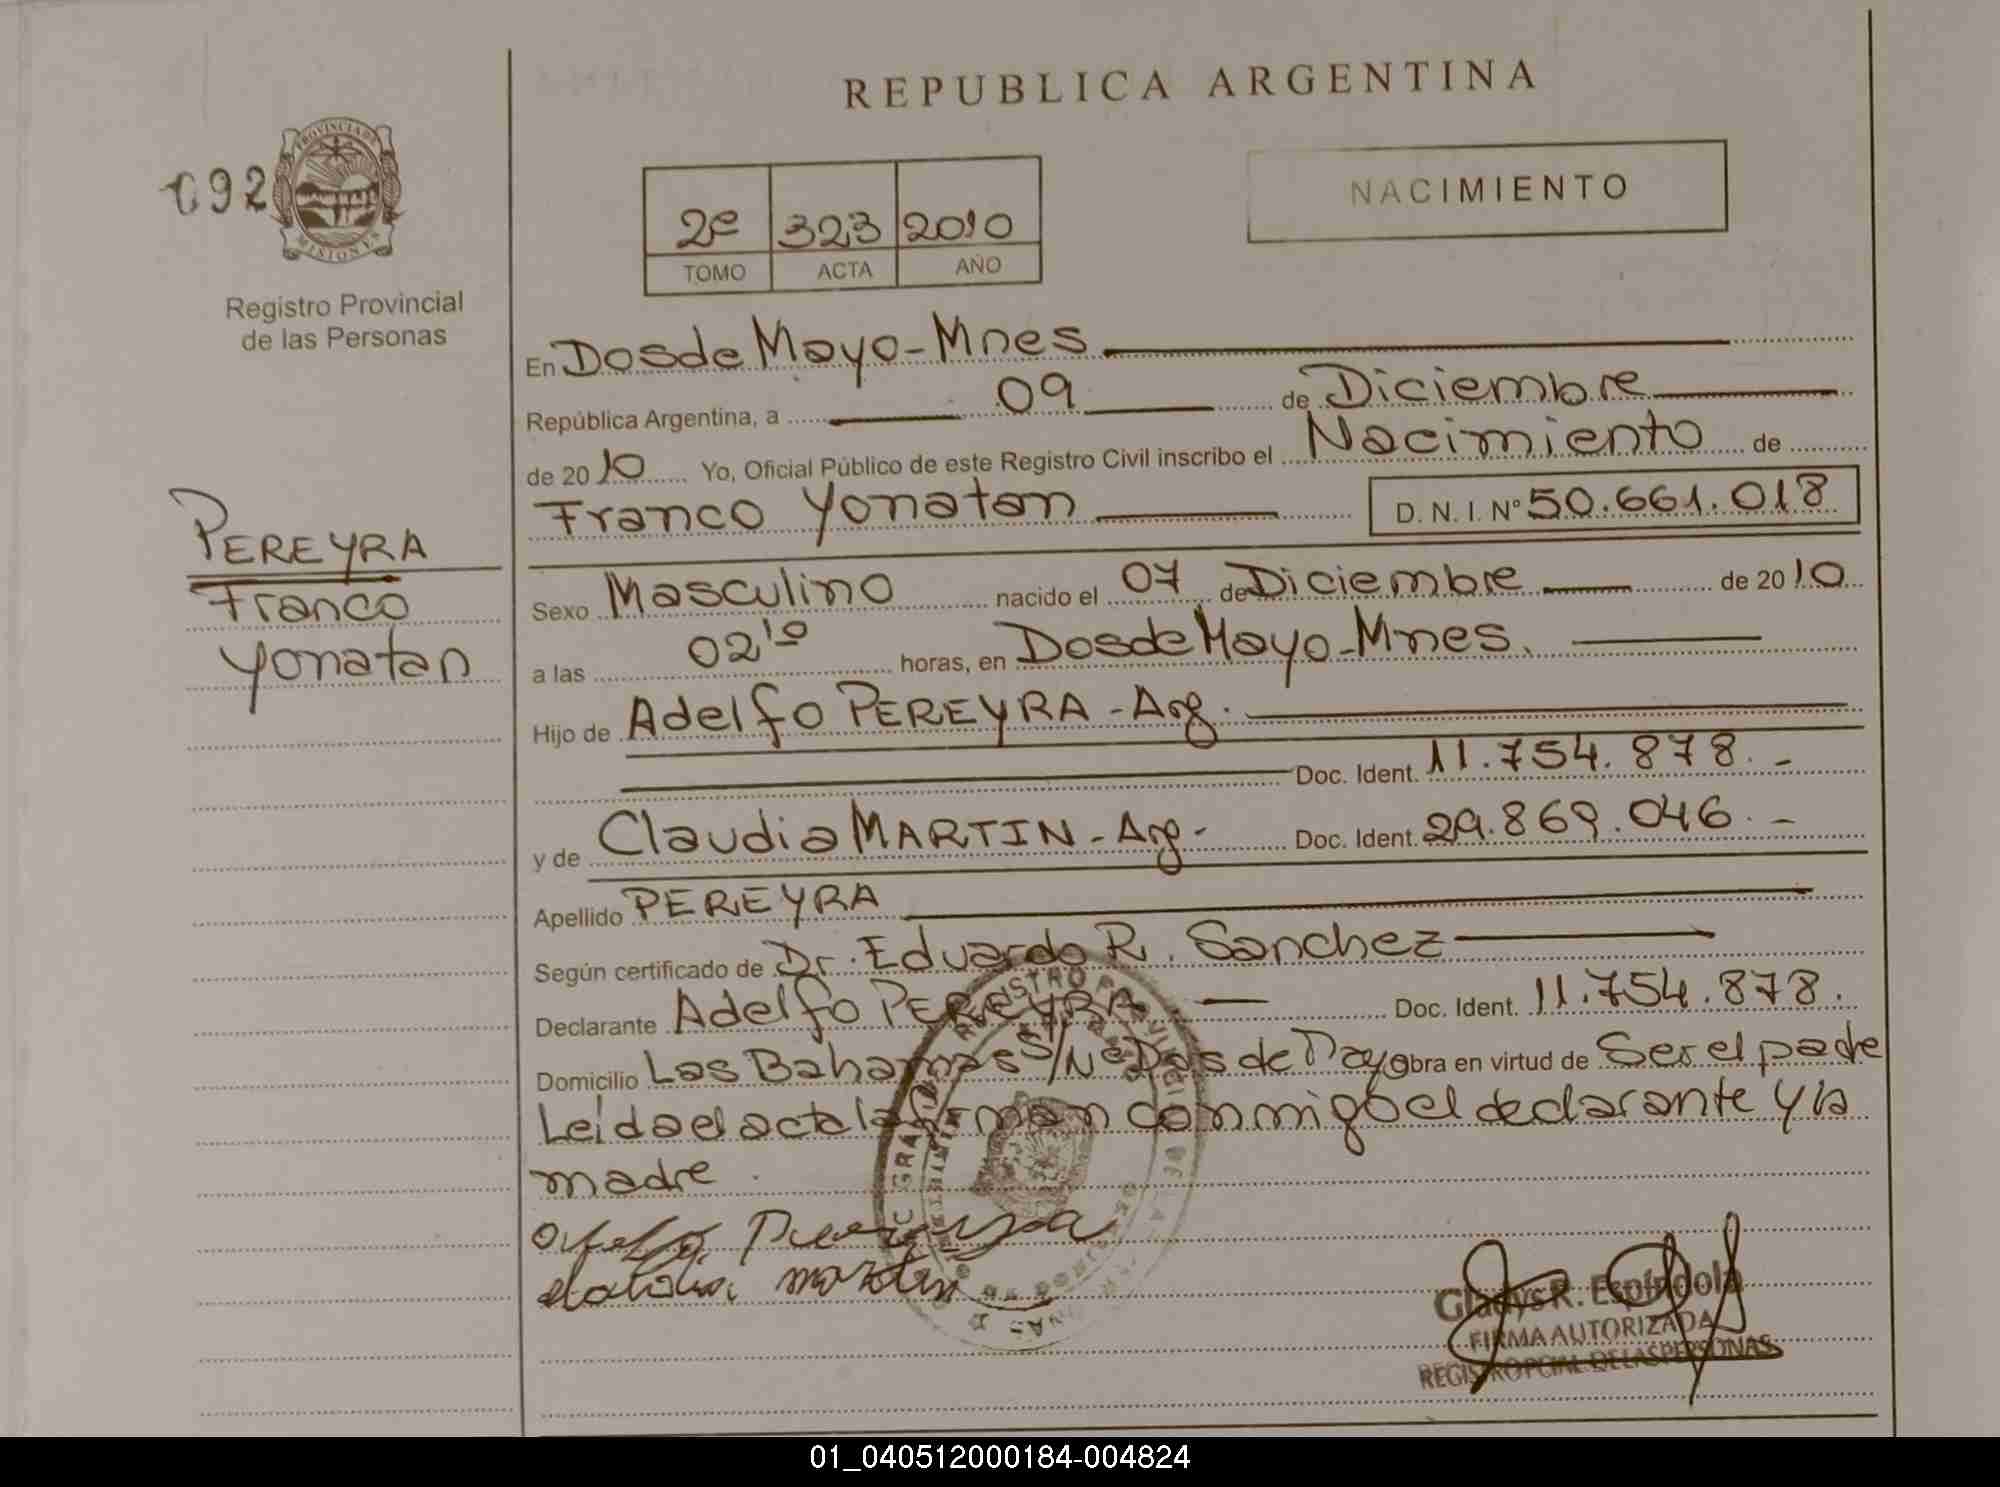 REPUBLICA ARGENTINA
092
PROVINCIA DE
MISIONES
Registro Provincial
de las Personas
2º 323 2010
TOMO ACTA AÑO
NACIMIENTO
En Dos de Mayo - Mnes
República Argentina, a 09 de Diciembre
de 2010 Yo, Oficial Público de este Registro Civil inscribo el Nacimiento de
Franco Yonatan D. N. I. Nº 50.661.018
PEREYRA
Franco
Yonatan
Sexo Masculino nacido el 07 de Diciembre de 2010
a las 02¹⁰ horas, en Dos de Mayo - Mnes.
Hijo de Adelfo PEREYRA - Arg.
Doc. Ident. 11.754.878.-
y de Claudia MARTIN - Arg- Doc. Ident. 29.869.046.-
Apellido PEREYRA
Según certificado de Dr. Eduardo R. Sanchez
Declarante Adelfo PEREYRA Doc. Ident. 11.754.878.
Domicilio Las Bahamas S/Nº Dos de Mayo obra en virtud de Ser el padre
Leída el acta la firman conmigo el declarante y la
madre.
Gladys R. Espíndola
FIRMA AUTORIZADA
REGISTRO PCIAL. DE LAS PERSONAS
01_040512000184-004824